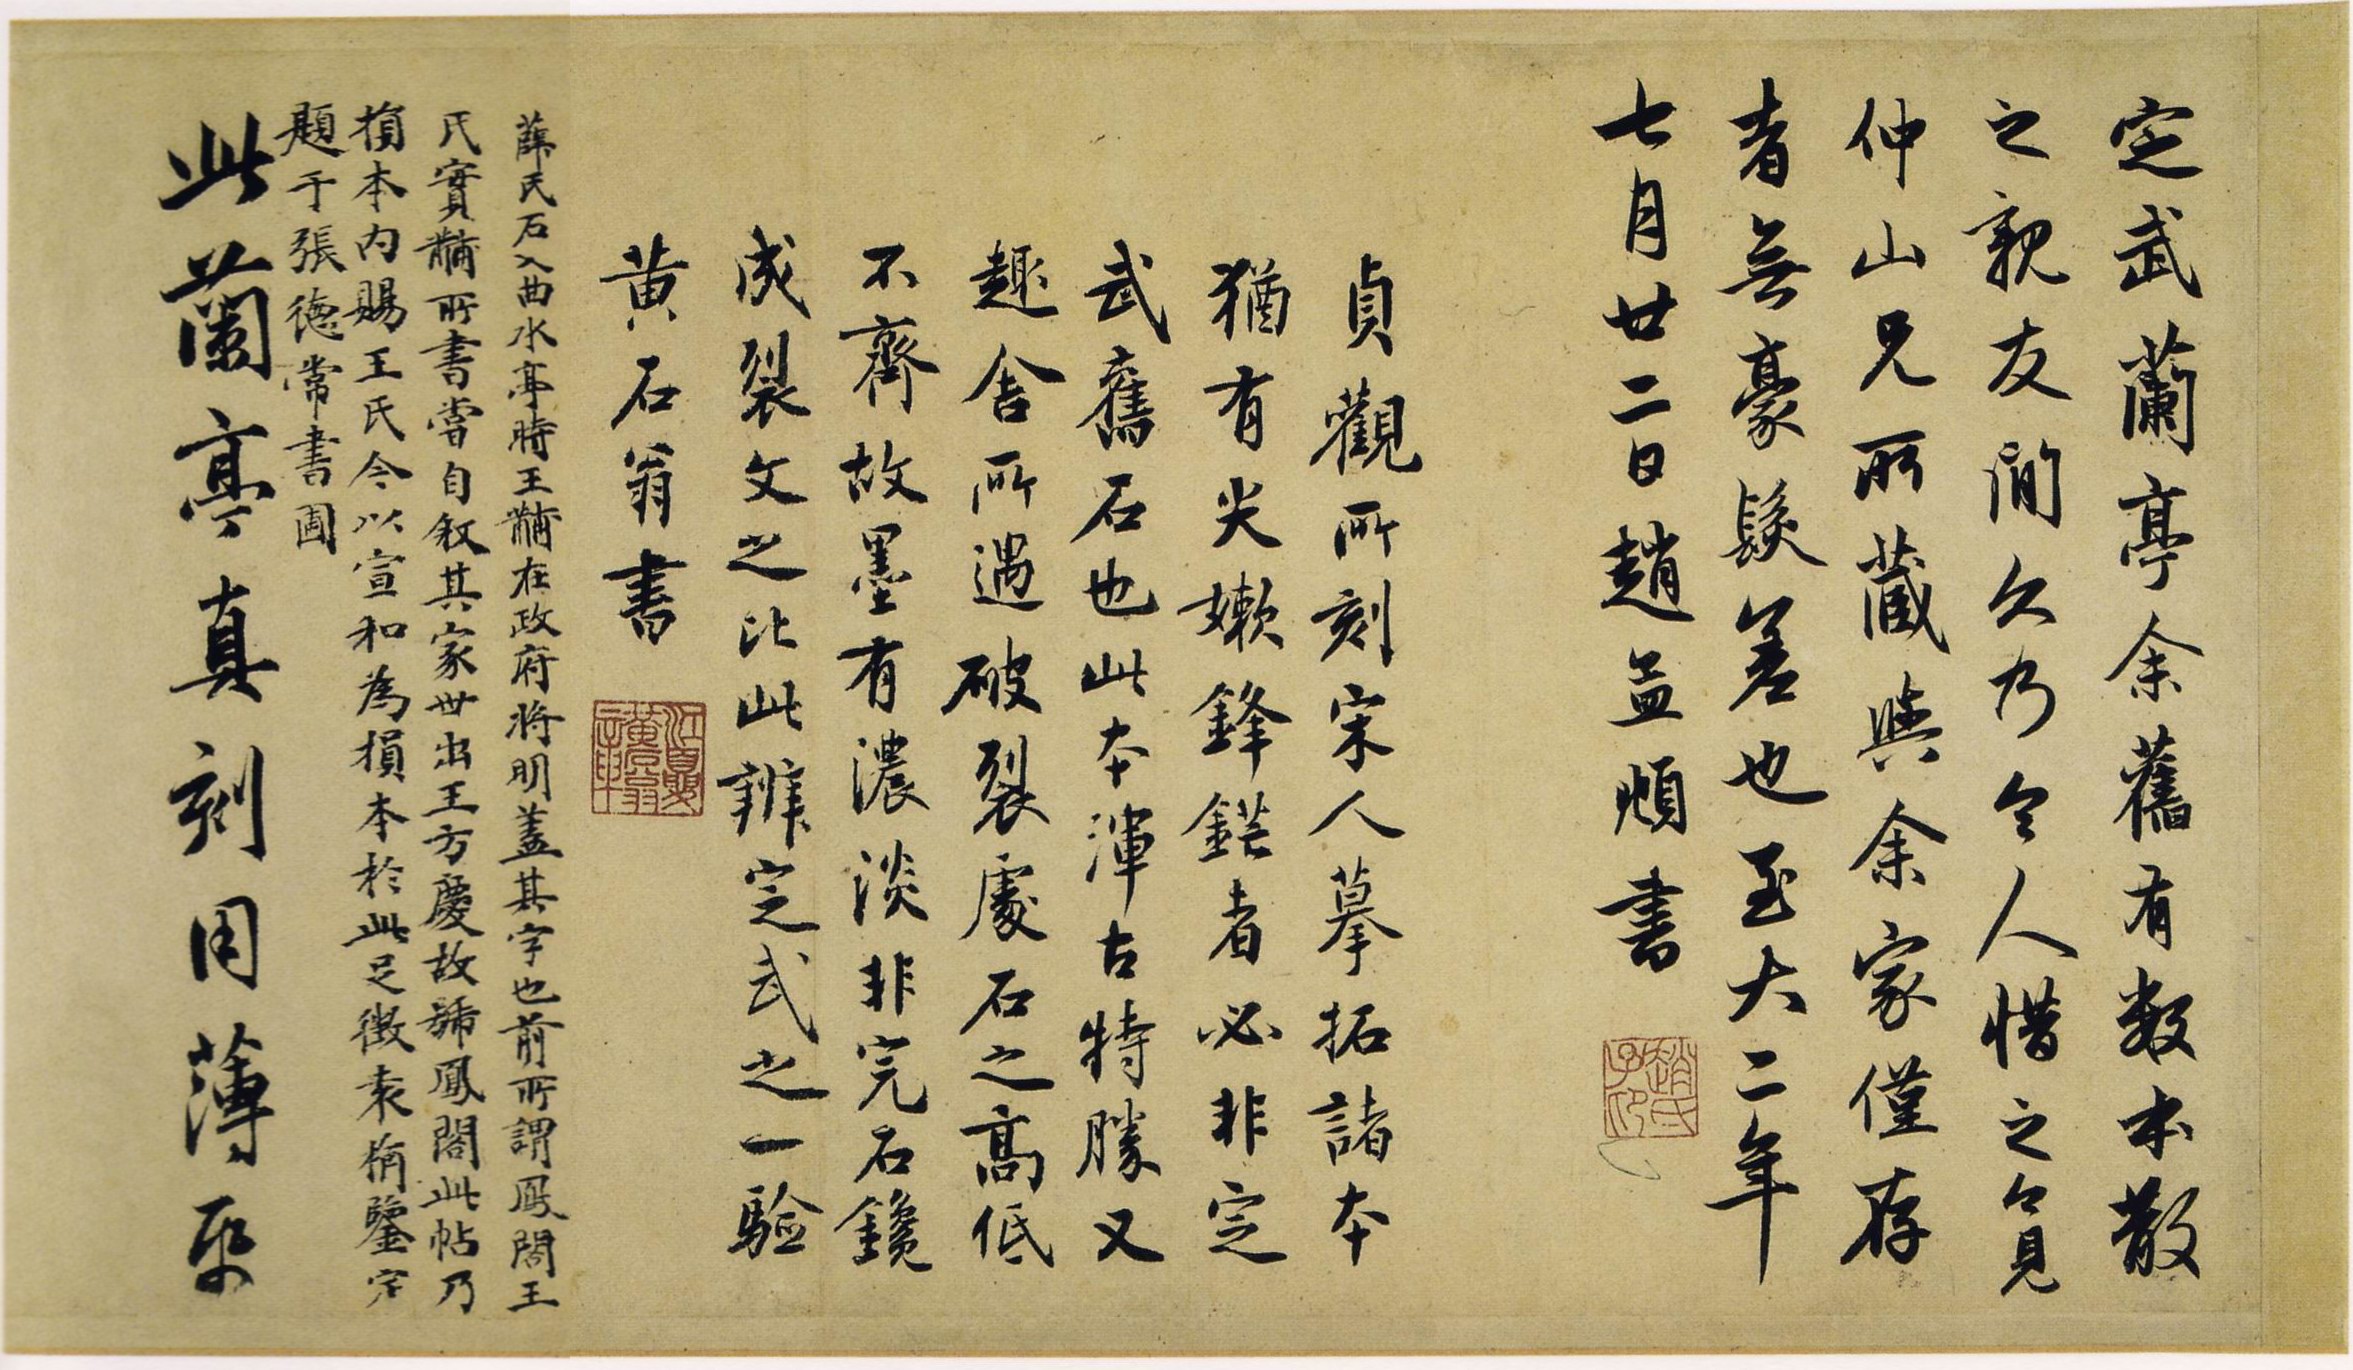 定武蘭亭余舊有數本散
之親友間久乃令人惜之今見
仲山兄所藏與余家僅存
者無豪髮差也至大二年
七月廿二日趙孟頫書
趙氏子印
貞觀所刻宋人摹拓諸本
猶有尖嫰鋒鋩者必非定
武舊石也此本渾古特勝又
趣舍所遇破裂處石之高低
不齊故墨有濃淡非完石鑱
成裂文之比此辨定武之一驗
黄石翁書
薛氏石入曲水亭時王黼在政府將明蓋其字也前所謂鳳閣王
氏實黼所書嘗自叙其家世出王方慶故號鳳閣此帖乃
損本内賜王氏令以宣和為損本於此足徵表稱鑒定
題于張德常書圃
此蘭亭真刻用薄